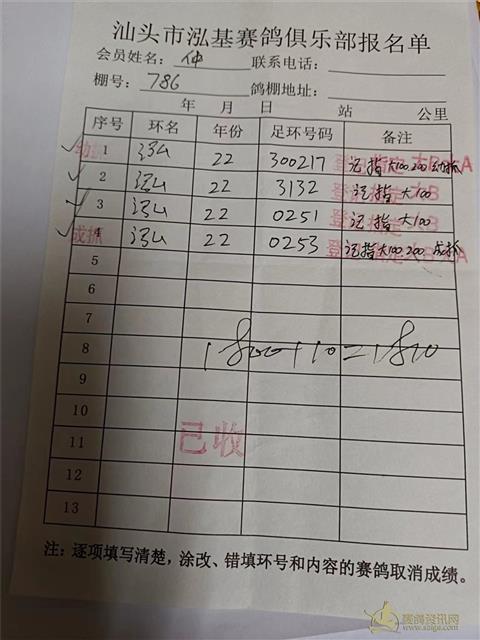 汕头市泓基赛鸽俱乐部报名单
会员姓名: 仲 联系电话:
棚号: 786 鸽棚地址:
年 月 日 站 公里
序号 环名 年份 足环号码 备注
1 汕 22 300217 记指大100 200 幼抓
2 汕 22 3132 记指大100
3 汕 22 0251 记指大100
4 汕 22 0253 记指大100 200 成抓
成抓
5
6
7
8 1800+10=1810
9
10
11 已收
12
13
注:逐项填写清楚,涂改、错填环号和内容的赛鸽取消成绩。
赛鸽资讯网
www.saige.com